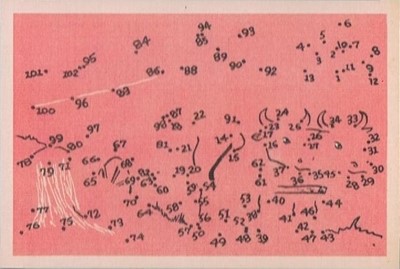 6
94
93
85
5
4
10
7
84
89
3
2
8
95
90
11
101
102
86
88
92
13
1
9
12
83
96
100
87
98
22
91
24
23
26
34
33
97
14
17
16
32
99
67
81
21
15
31
78
80
66
62
37
30
79
71
65
68
82
19
20
61
36
35
45
28
29
69
63
60
59
54
70
64
58
55
53
40
46
44
72
56
52
41
76
77
75
74
73
57
50
51
38
42
49
48
39
47
43